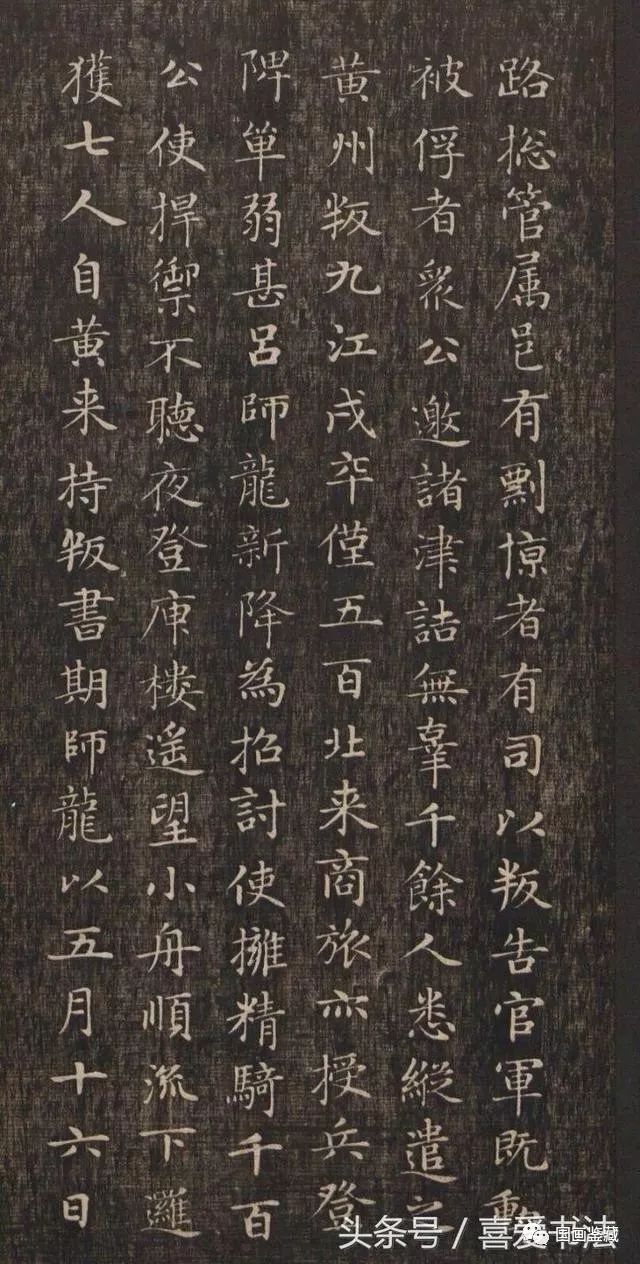 路揔管属邑有剽掠者有司以叛告官軍既動
被俘者衆公邀諸津詰無辜千餘人悉縱遣之
黄州叛九江戍卒僅五百北来商旅亦授兵登
陴单弱甚吕師龍新降為招討使擁精騎千百
公使捍禦不聽夜登庾樓遥望小舟順流下邏
獲七人自黄来持叛書期師龍以五月十六日
头条号 / 喜爱书法
国画鉴藏